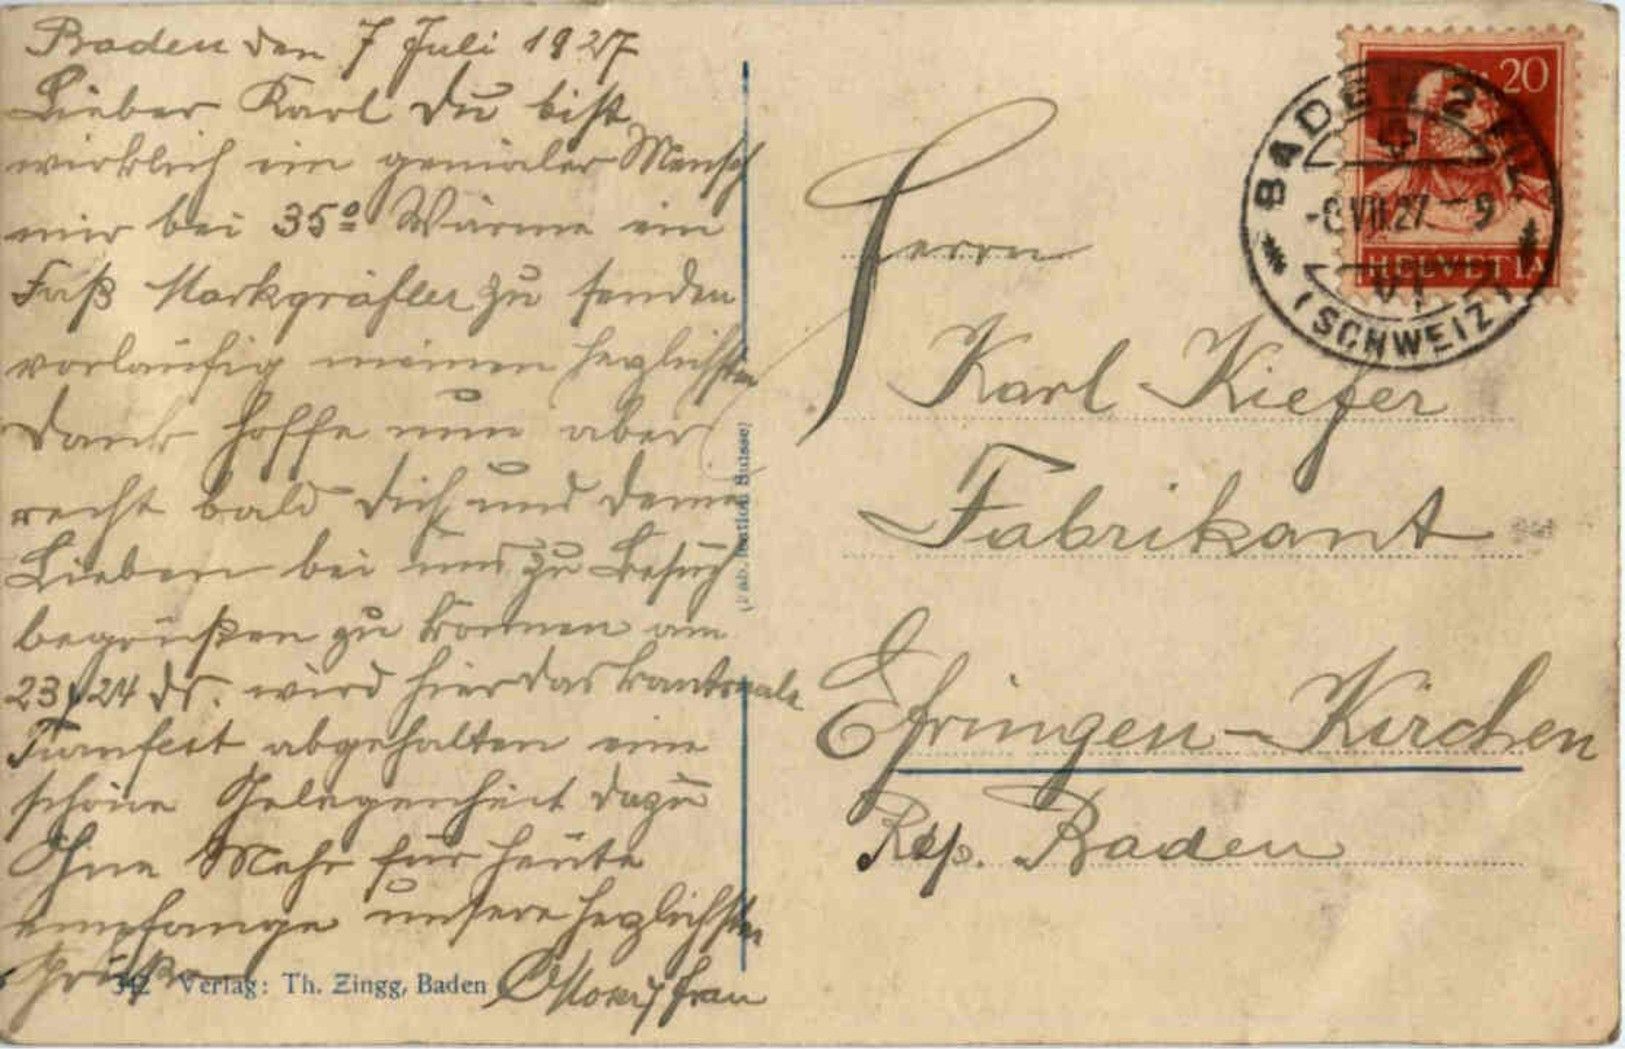 Baden den 7 Juli 1927
Lieber Karl Du bist
wirklich ein genialer Mensch
mir bei 35° Wärme ein
Faß Markgräfler zu senden
vorläufig meinen herzlichsten
Dank hoffe nun aber
recht bald Dich und Deine
Lieben bei uns zu Besuch
begrüßen zu können am
23/24 ds. wird hier das kantonale
Turnfest abgehalten eine
schöne Gelegenheit dazu
Ohne Mehr für heute
empfange unsere herzlichsten
Grüße
342 Verlag: Th. Zingg, Baden
Frau
Herrn
Karl Kiefer
Fabrikant
Efringen-Kirchen
Rep. Baden
20
HELVETIA
BADEN 2
-8.VII.27.-9
(SCHWEIZ)